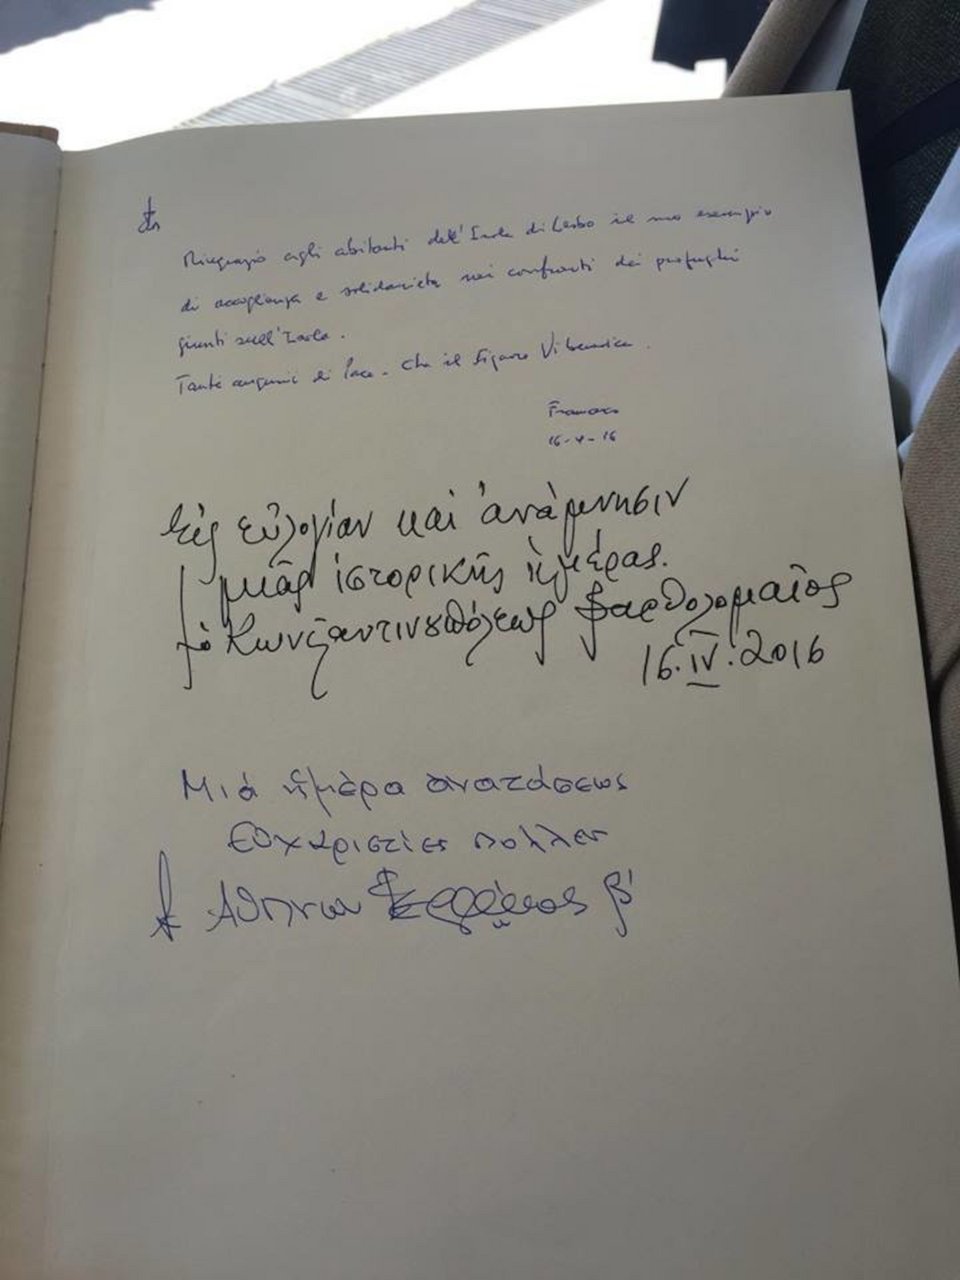 Ringrazio agli abitanti dell'Isola di Lesbo il suo esempio
di accoglienza e solidarietà nei confronti dei profughi
giunti sull'Isola.
Tanti auguri di Pace. Che il Signore Vi benedica.
Francesco
16-4-16
Εἰς εὐλογίαν καὶ ἀνάμνησιν
μιᾶς ἱστορικῆς ἡμέρας.
† ὁ Κωνσταντινουπόλεως Βαρθολομαῖος
16.IV.2016
Μιά ἡμέρα ἀναστάσεως
Εὐχαριστίες πολλές
† Ἀθηνῶν Ἱερώνυμος β'